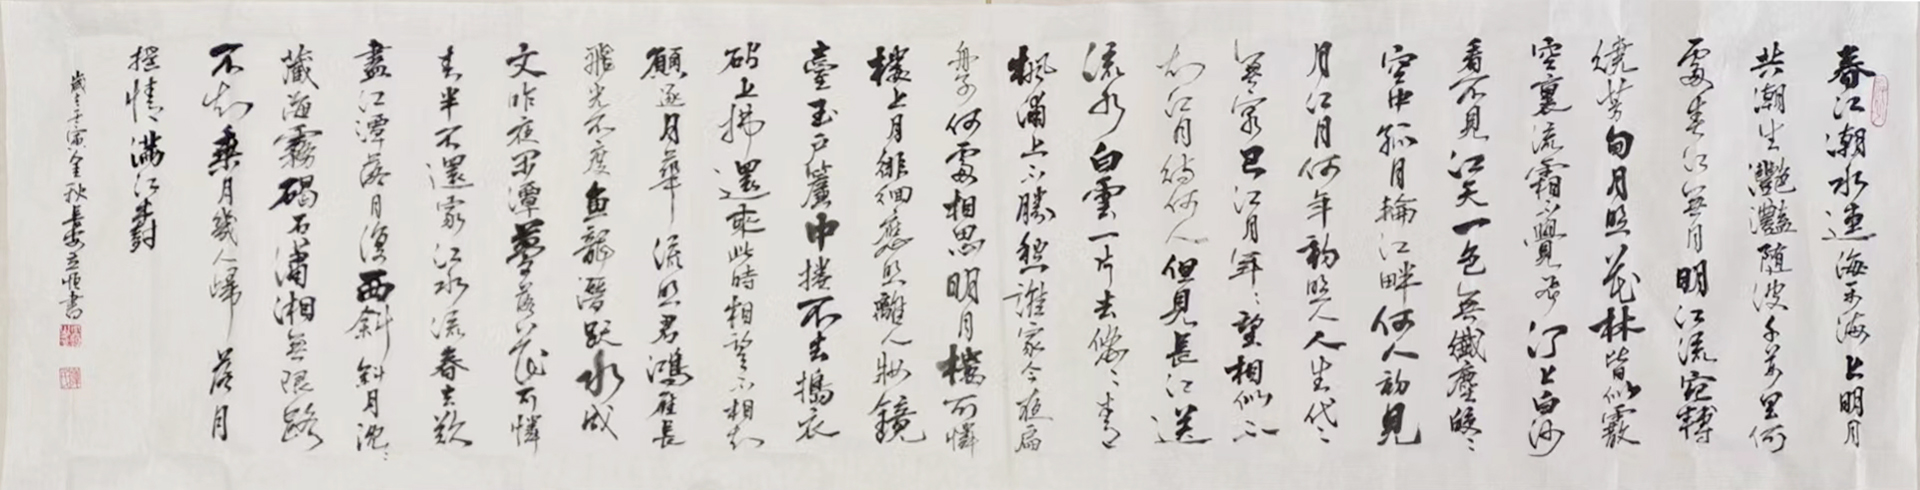 春江潮水連海平海上明月
共潮生灩灩随波千萬里何
處春江無月明江流宛轉
繞芳甸月照花林皆似霰
空裏流霜不覺飛汀上白沙
看不見江天一色無纖塵皎〻
空中孤月輪江畔何人初見
月江月何年初照人人生代〻
無窮已江月年〻望相似不
知江月待何人但見長江送
流水白雲一片去悠〻青
楓浦上不勝愁誰家今夜扁
舟子何處相思明月樓可憐
樓上月徘徊應照離人妝鏡
臺玉戶簾中捲不去搗衣
砧上拂還來此時相望不相知
願逐月華流照君鴻雁長
飛光不度魚龍潛躍水成
文昨夜閒潭夢落花可憐
春半不還家江水流春去欲
盡江潭落月復西斜斜月沉〻
藏海霧碣石瀟湘無限路
不知乘月幾人歸落月
搖情滿江樹
歲壬寅金秋長安立恒書